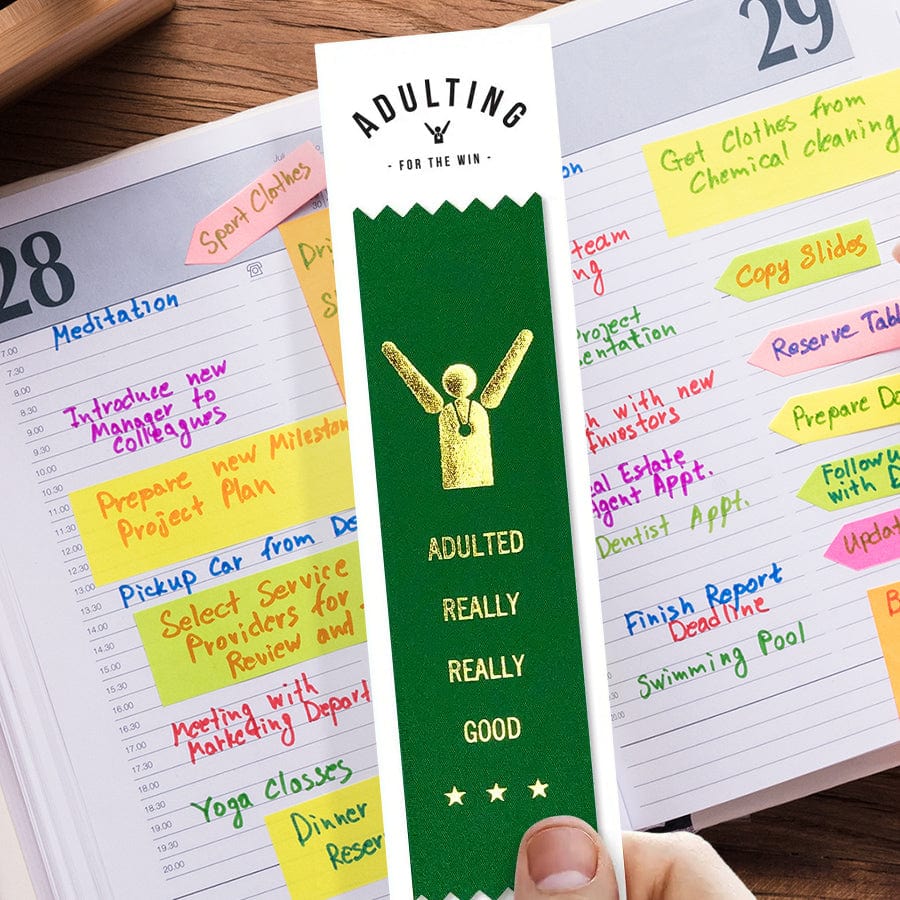 ADULTING
- FOR THE WIN -
ADULTED
REALLY
REALLY
GOOD
28
Sport Clothes
Meditation
7.00
7.30
8.00
8.30
9.00
9.30
10.00
10.30
11.00
11.30
12.00
12.30
13.00
13.30
14.00
14.30
15.00
15.30
16.00
16.30
17.00
17.30
18.00
18.30
19.00
19.30
20.00
Introduce new
Manager to
Colleagues
Prepare new
Project Plan
Pickup Car from
Select Service
Providers for
Review and
Meeting with
Marketing
Yoga Classes
Dinner
29
Get Clothes from
Chemical cleaning
team
Copy Slides
Reserve
with new
Investors
Prepare
Appt.
Follow
with
Dentist Appt.
Finish Report
Deadline
Swimming Pool